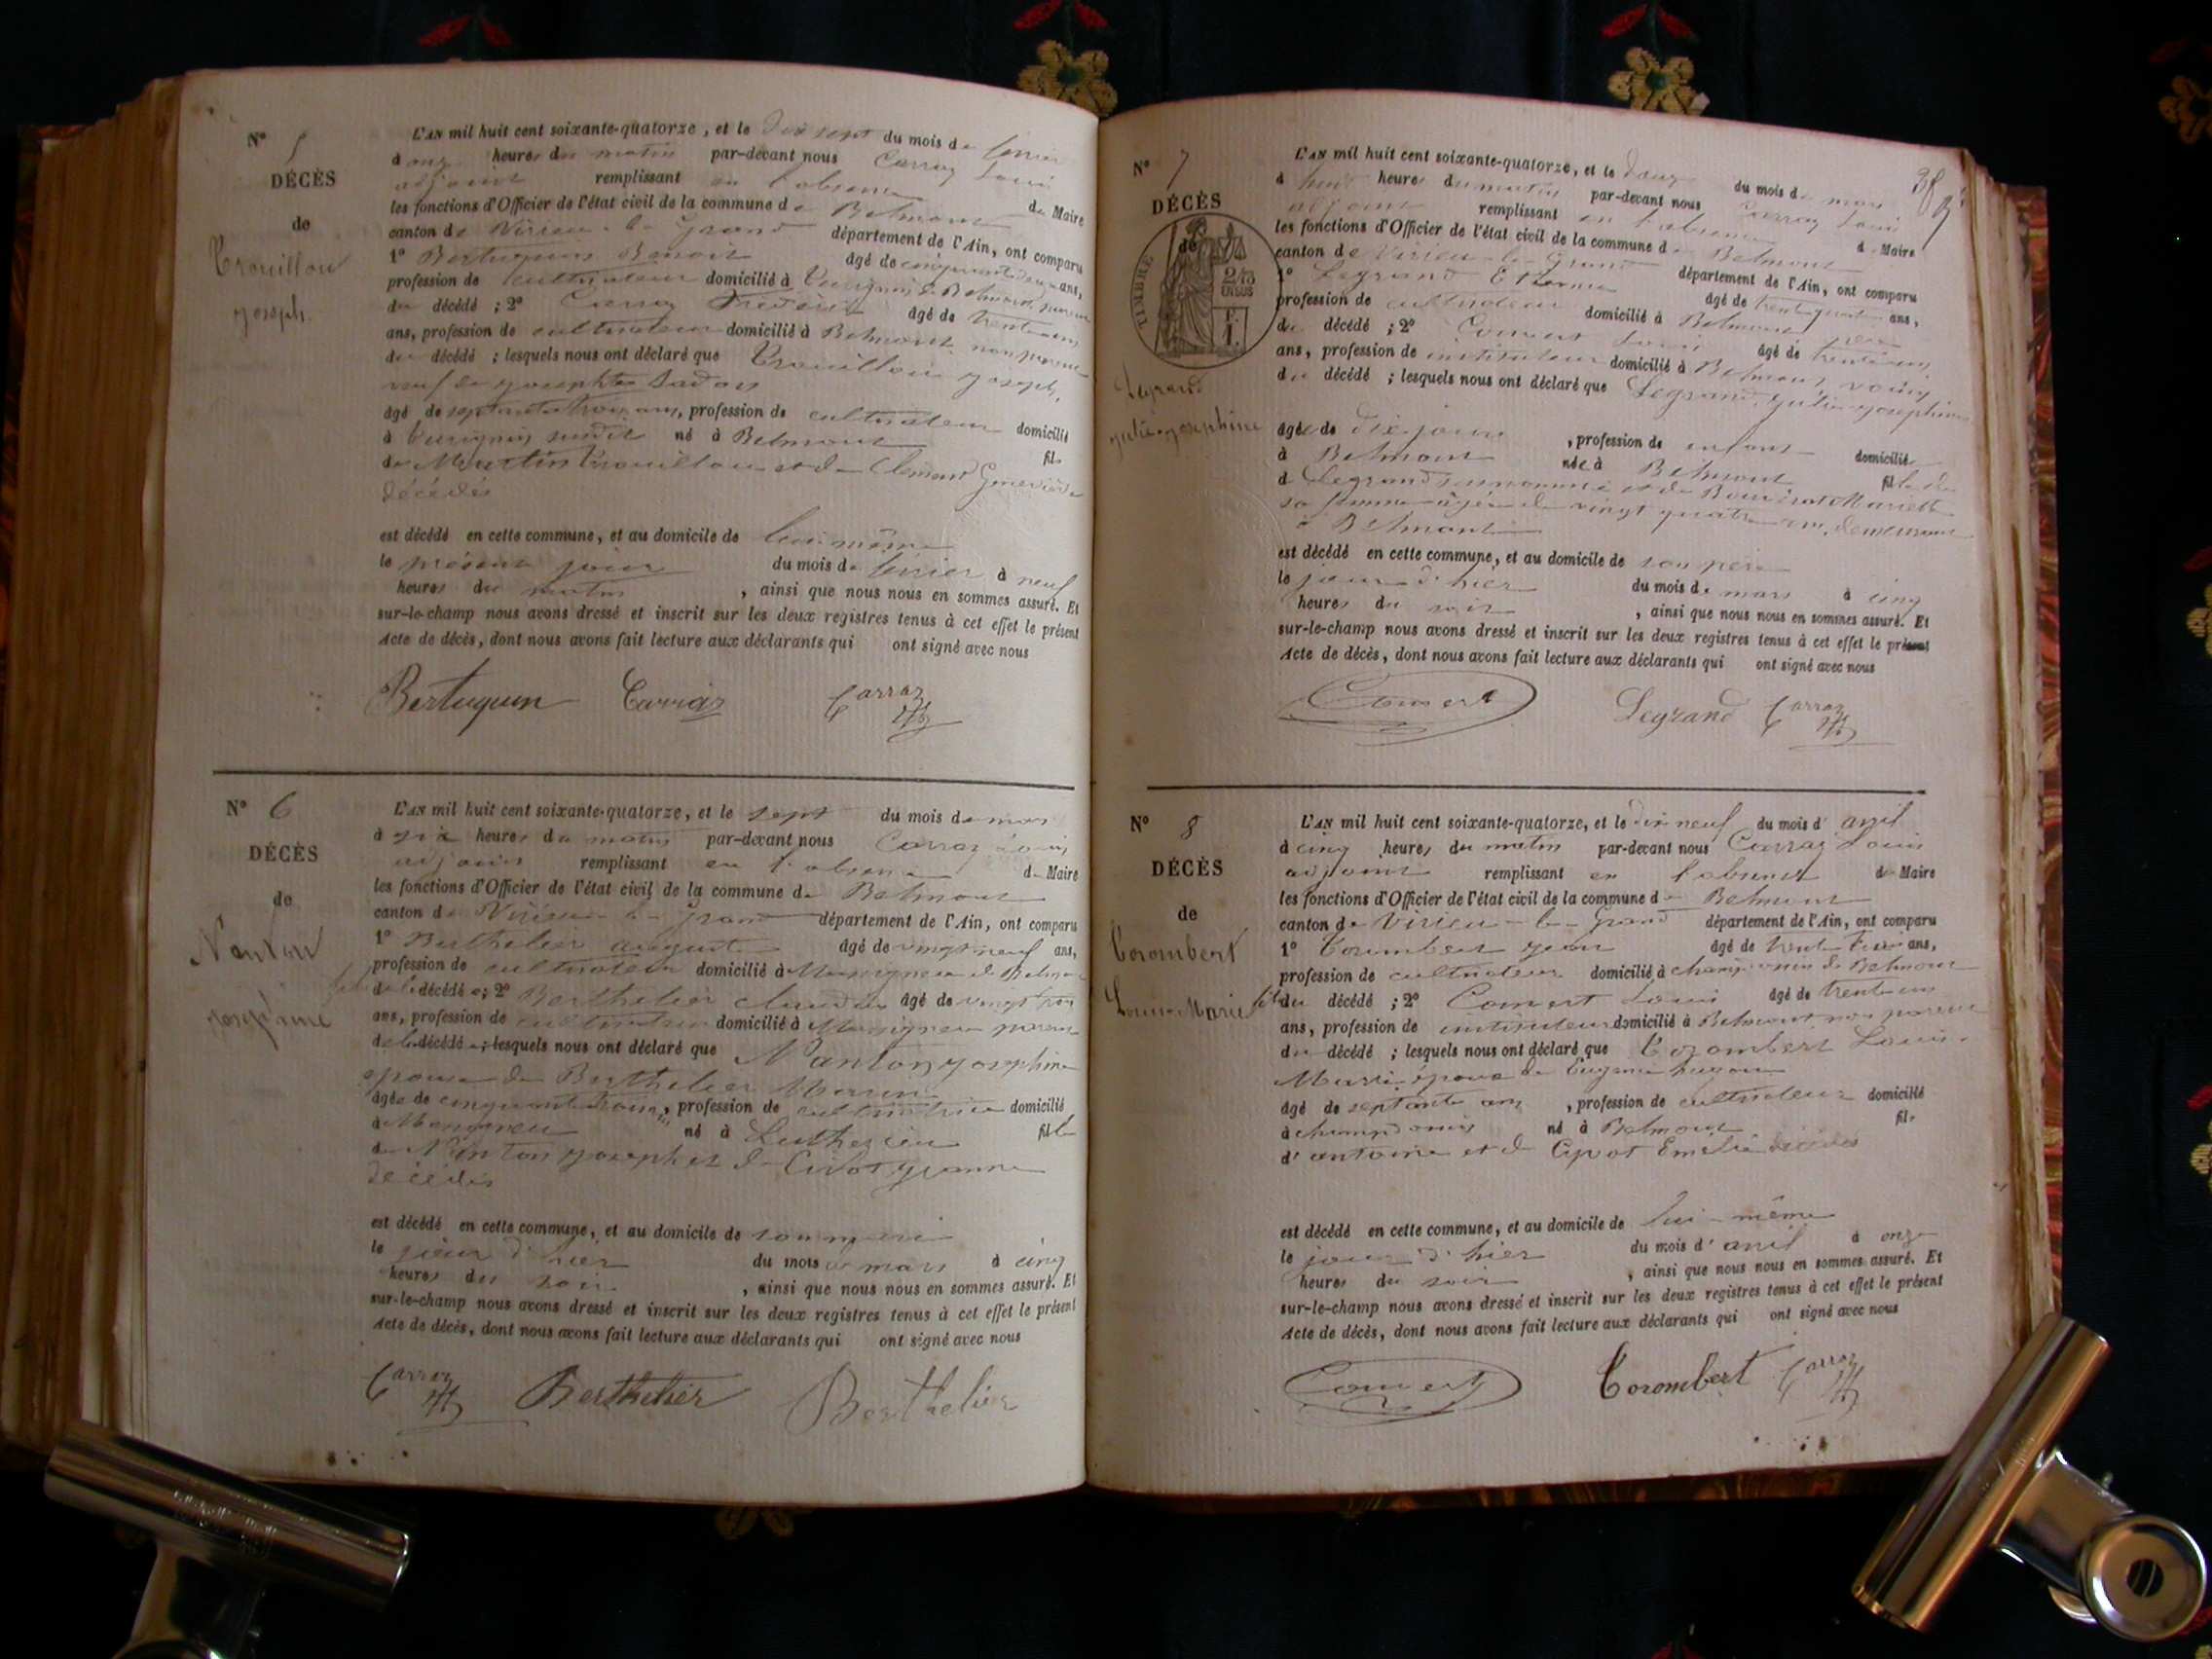 N° 5
DÉCÈS
de
Trouillon
Joseph.
L'AN mil huit cent soixante-quatorze, et le dix sept du mois de
à onze heures du matin par-devant nous Carraz Louis
adjoint remplissant en l'absence du Maire
les fonctions d'Officier de l'état civil de la commune de Belmont
canton de Virieu-le-Grand département de l'Ain, ont comparu
1° Benoit âgé de cinquante ans,
profession de cultivateur domicilié à de Belmont
du décédé ; 2° âgé de trente un
ans, profession de cultivateur domicilié à Belmont non parent
du décédé ; lesquels nous ont déclaré que Trouillon Joseph,
veuf de Josephte
âgé de ans, profession de cultivateur domicilié
à susdit né à Belmont fils
de Martin Trouillon et de Clément Geneviève
décédés
est décédé en cette commune, et au domicile de lui même
le présent jour du mois de à neuf
heures du matin, ainsi que nous nous en sommes assuré. Et
sur-le-champ nous avons dressé et inscrit sur les deux registres tenus à cet effet le présent
Acte de décès, dont nous avons fait lecture aux déclarants qui ont signé avec nous
Carraz
N° 6
DÉCÈS
de
Nanton
Josephine
L'AN mil huit cent soixante-quatorze, et le sept du mois de mars
à six heures du matin par-devant nous Carraz Louis
adjoint remplissant en l'absence du Maire
les fonctions d'Officier de l'état civil de la commune de Belmont
canton de Virieu-le-Grand département de l'Ain, ont comparu
1° Berthelier auguste âgé de vingt neuf ans,
profession de cultivateur domicilié à de Belmont
de la décédée ; 2° Berthelier âgé de vingt
ans, profession de cultivateur domicilié à parent
de la décédée ; lesquels nous ont déclaré que Nanton Josephine
épouse de Berthelier
âgée de cinquante ans, profession de cultivatrice domicilié
à né à Luthezieu fille
de Nanton Joseph et de Jeanne
décédés
est décédé en cette commune, et au domicile de son mari
le jour d'hier du mois de mars à cinq
heures du soir, ainsi que nous nous en sommes assuré. Et
sur-le-champ nous avons dressé et inscrit sur les deux registres tenus à cet effet le présent
Acte de décès, dont nous avons fait lecture aux déclarants qui ont signé avec nous
Carraz Berthelier Berthelier
N° 7
DÉCÈS
de
TIMBRE
2/10
EN SUS
Legrand
Julie-Josephine
L'AN mil huit cent soixante-quatorze, et le douze du mois de mars
à heures du matin par-devant nous Carraz Louis
adjoint remplissant en l'absence du Maire
les fonctions d'Officier de l'état civil de la commune de Belmont
canton de Virieu-le-Grand département de l'Ain, ont comparu
1° Legrand Etienne âgé de trente quatre ans,
profession de cultivateur domicilié à Belmont père
du décédé ; 2° Comert Louis âgé de trente un
ans, profession de instituteur domicilié à Belmont, voisin
du décédé ; lesquels nous ont déclaré que Legrand Julie-Josephine
âgée de dix jours, profession de enfant domicilié
à Belmont née à Belmont fille de
d Legrand et de Mariette
sa femme âgée de vingt quatre ans, demeurant
à Belmont
est décédé en cette commune, et au domicile de son père
le jour d'hier du mois de mars à cinq
heures du soir, ainsi que nous nous en sommes assuré. Et
sur-le-champ nous avons dressé et inscrit sur les deux registres tenus à cet effet le présent
Acte de décès, dont nous avons fait lecture aux déclarants qui ont signé avec nous
Comert Legrand Carraz
N° 8
DÉCÈS
de
Corombert
Louis-Marie
L'AN mil huit cent soixante-quatorze, et le dix neuf du mois d'avril
à cinq heures du matin par-devant nous Carraz Louis
adjoint remplissant en l'absence du Maire
les fonctions d'Officier de l'état civil de la commune de Belmont
canton de Virieu-le-Grand département de l'Ain, ont comparu
1° Corombert Jean âgé de trente trois ans,
profession de cultivateur domicilié à champdonin de Belmont
fils du décédé ; 2° Comert Louis âgé de trente un
ans, profession de instituteur domicilié à Belmont non parent
du décédé ; lesquels nous ont déclaré que Corombert Louis-
Marie époux de Eugenie
âgé de septante ans, profession de cultivateur domicilié
à champdonin né à Belmont fils
d'antoine et d Emelie décédés
est décédé en cette commune, et au domicile de lui-même
le jour d'hier du mois d'avril à onze
heures du soir, ainsi que nous nous en sommes assuré. Et
sur-le-champ nous avons dressé et inscrit sur les deux registres tenus à cet effet le présent
Acte de décès, dont nous avons fait lecture aux déclarants qui ont signé avec nous
Comert Corombert Carraz